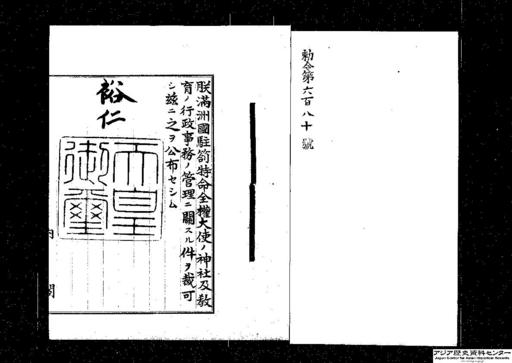 勅令第六百八十號
朕滿洲國駐箚特命全權大使ノ神社及敎
育ノ行政事務ノ管理ニ關スル件ヲ裁可
シ玆ニ之ヲ公布セシム
裕仁
天皇
御璽
内閣
アジア歴史資料センター
Japan Center for Asian Historical Records